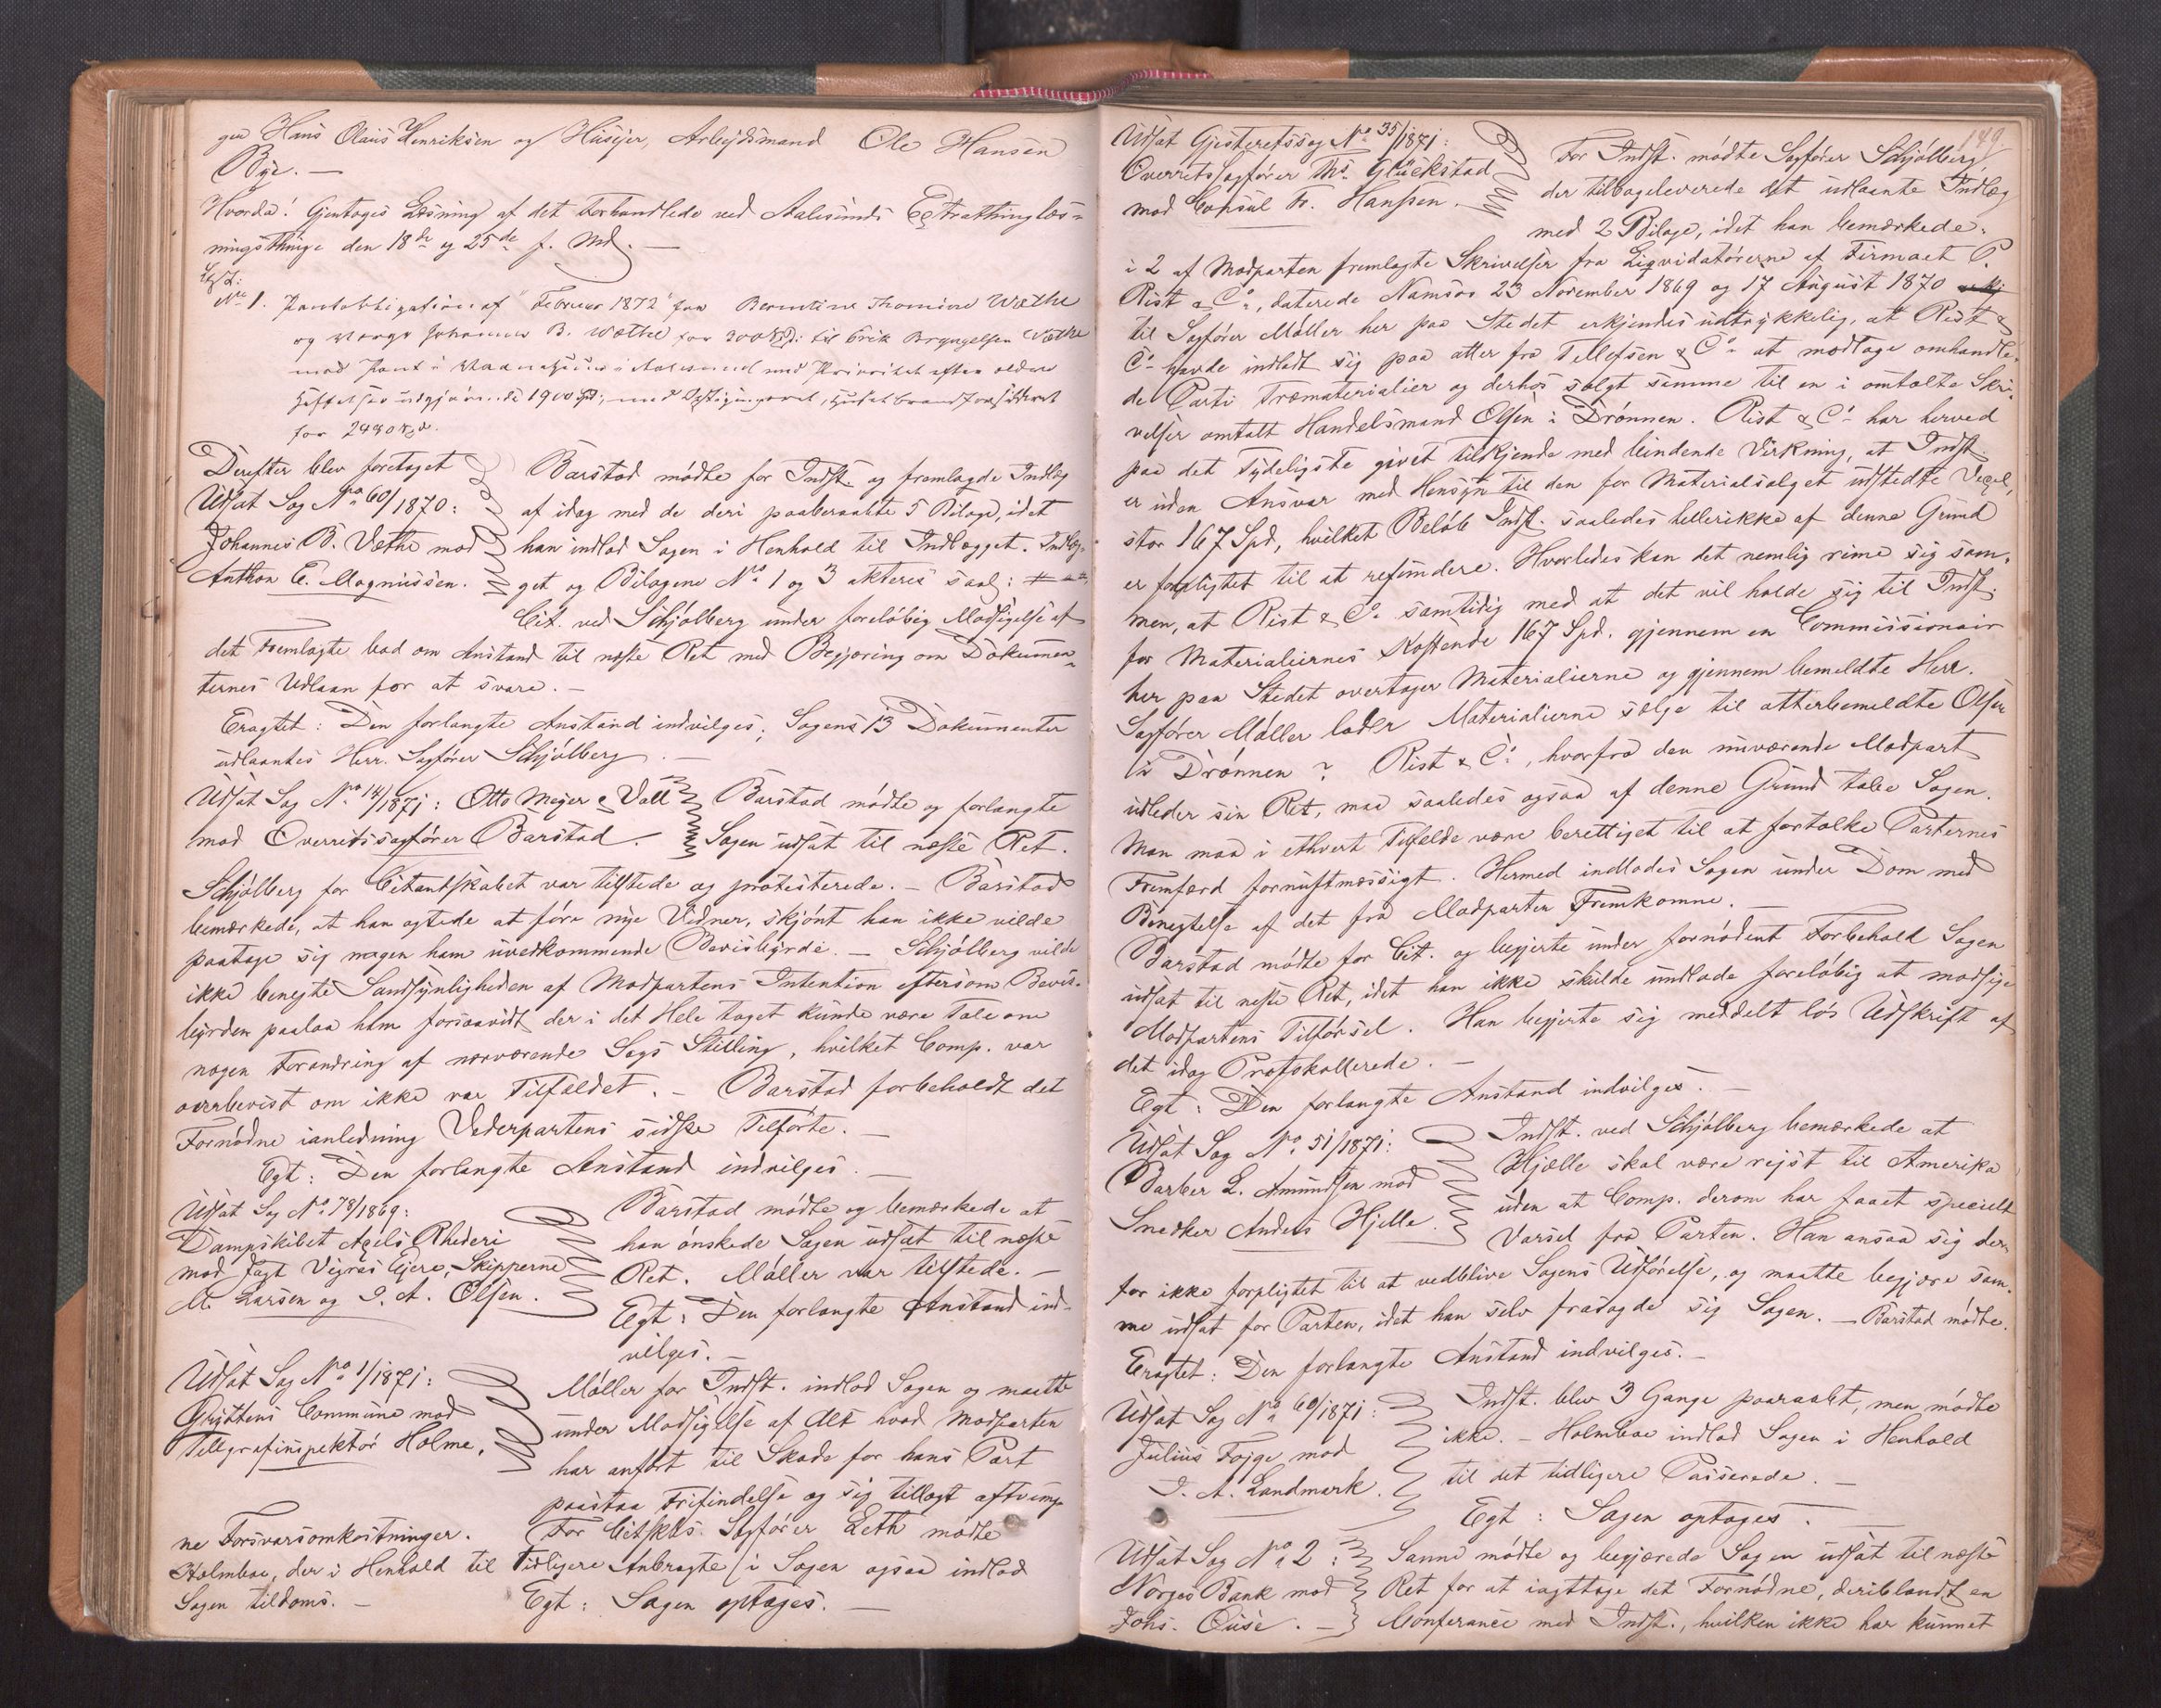 gen Hans Olaus Henriksen og Huusejer, Arbejdsmand Ole Hansen
Bye. —
Hvorda! Gjentoges Læsning af det forhandlede ved Aalesunds Extrathinglæs-
ningsthinge den 18de og 25de f. Md. —
Læst:
No 1. Pantobligation af Februar 1872 fra Berntine Thomine Wæthe
og Johannes B. Wæthe for 300 Spd: til Erik Brynjelsen Wæthe
med Pant i i Aalesund med Prioritet efter ældre
Hæftelser udgjørende 1900 Spd, med Opsigningsret, Huset brandforsikkret
for 2480 Spd.
Derefter blev foretaget
Udsat Sag No 60/1870:
Johannes B. Væthe mod
Anthon E. Magnussen.
Barstad mødte for Indst. og fremlagde Indlæg
af idag med de deri paaberaabte 5 Bilage, idet
han indlod Sagen i Henhold til Indlægget. Indlæg-
get og Bilagene No 1 og 3 akteres saal:
Cit. ved Schjølberg under foreløbig Modsigelse af
det Fremlagte bad om Anstand til næste Ret med Begjæring om Dokumen-
ternes Udlaan for at svare. —
Eragtet: Den forlangte Anstand indvilges; Sagens 13 Dokumenter
udlaantes Herr. Sagfører Schjølberg. —
Udsat Sag No 14/1871: Otto Mejer & Vall
mod Overretssagfører Barstad.
Barstad mødte og forlangte
Sagen udsat til næste Ret.
Schjølberg for Citantskabet var tilstede og protesterede. — Barstad
bemærkede, at han agtede at føre nye Vidner, skjønt han ikke vilde
paatage sig nogen ham uvedkommende Bevisbyrde. — Schjølberg vilde
ikke benegte Sandsynligheden af Modpartens Intention eftersom Bevis-
byrden paalaa ham forsaavidt der i det Hele taget kunde være Tale om
nogen Forandring af nærværende Sags Stilling, hvilket Comp. var
overbevist om ikke var Tilfældet. — Barstad forbeholdt det
Fornødne ianledning Vederpartens sidste Tilførte. —
Egt: Den forlangte Anstand indvilges. —
Udsat Sag No 78/1869:
Dampskibet Axels Rhederi
mod Jagt Vigras Ejere, Skipperne
M. Larsen og I. A. Olsen.
Barstad mødte og bemærkede at
han ønskede Sagen udsat til næste
Ret. Møller var tilstede. —
Egt: Den forlangte Anstand ind-
vilges. —
Udsat Sag No 1/1871:
Gryttens Commune mod
Telegrafinspektør Holme.
Møller for Indst. indlod Sagen og maatte
under Modsigelse af Alt hvad Modparten
har anført til Skade for hans Part
paastaa Frifindelse og sig tillagt aftvung-
ne Forsvarsomkostninger. For Citskbs. Sagfører Leth mødte
Holmboe, der i Henhold til tidligere Anbragte i Sagen ogsaa indlod
Sagen tildoms. — Egt: Sagen optages. —
149
Udsat Gjesteretssag No 35/1871:
Overretssagfører Ths. Glückstad
mod Consul Fr. Hanssen.
For Indst. mødte Sagfører Schjølberg
der tilbageleverede det udlaante Indlæg
med 2 Bilage, idet han bemærkede:
i 2 af Modparten fremlagte Skrivelser fra Liqvidatørerne af Firmaet P.
Rist & Co, daterede Namsos 23 November 1869 og 17 August 1870
til Sagfører Møller her paa Stedet erkjendes udtrykkelig, at Rist &
Co havde indladt sig paa atter fra Tellefsen & Co at modtage omhandle-
de Parti Træmaterialier og derhos solgt samme til en i omtalte Skri-
velser omtalt Handelsmand Olsen i Drønnen. Rist & Co har herved
paa det Tydeligste givet tilkjende med bindende Virkning, at Indst.
er uden Ansvar med Hensyn til den for Materialsalget udstedte Vexel,
stor 167 Spd, hvilket Beløb Indst. saaledes hellerikke af denne Grund
er forpligtet til at refundere. Hvorledes kan det nemlig rime sig sam-
men, at Rist & Co samtidig med at det vil holde sig til Indst.
for Materialiernes Kostende 167 Spd. gjennem en Commissionair
her paa Stedet overtager Materialierne og gjennem bemeldte Herr.
Sagfører Møller lader Materialierne sælge til atterbemeldte Olsen
i Drønnen? Rist & Co, hvorfra den nuværende Modpart
udleder sin Ret, maa saaledes ogsaa af denne Grund tabe Sagen.
Man maa i ethvert Tilfælde være berettiget til at fortolke Parternes
Fremfærd fornuftmæssigt. Hermed indlodes Sagen under Dom med
Benegtelse af det fra Modparten Fremkomne. —
Barstad mødte for Cit. og begjerte under fornødent Forbehold Sagen
udsat til næste Ret, idet han ikke skulde undlade foreløbig at modsige
Modpartens Tilførsel. Han begjerte sig meddelt løs Udskrift af
det idag Protokollerede. —
Egt: Den forlangte Anstand indvilges. —
Udsat Sag No 51/1871:
Barber L. Amundsen mod
Snedker Anders Hjelle.
Indst. ved Schjølberg bemærkede at
Hjelle skal være rejst til Amerika
uden at Comp. derom har faaet specielt
Varsel fra Parten. Han ansaa sig der-
for ikke forpligtet til at vedblive Sagens Udførelse, og maatte begjære sam-
me udsat for Parten, idet han selv frasagde sig Sagen. — Barstad mødte.
Eragtet: Den forlangte Anstand indvilges. —
Udsat Sag No 60/1871:
Julius Fojge mod
I. A. Landmark.
Indst. blev 3 Gange paaraabt, men mødte
ikke. — Holmboe indlod Sagen i Henhold
til det tidligere Passerede. —
Egt: Sagen optages. —
Udsat Sag No 2:
Norges Bank mod
Johs. Quse. —
Sanne mødte og begjærede Sagen udsat til næste
Ret for at iagttage det Fornødne, deriblandt en
Conferance med Indst., hvilken ikke har kunnet